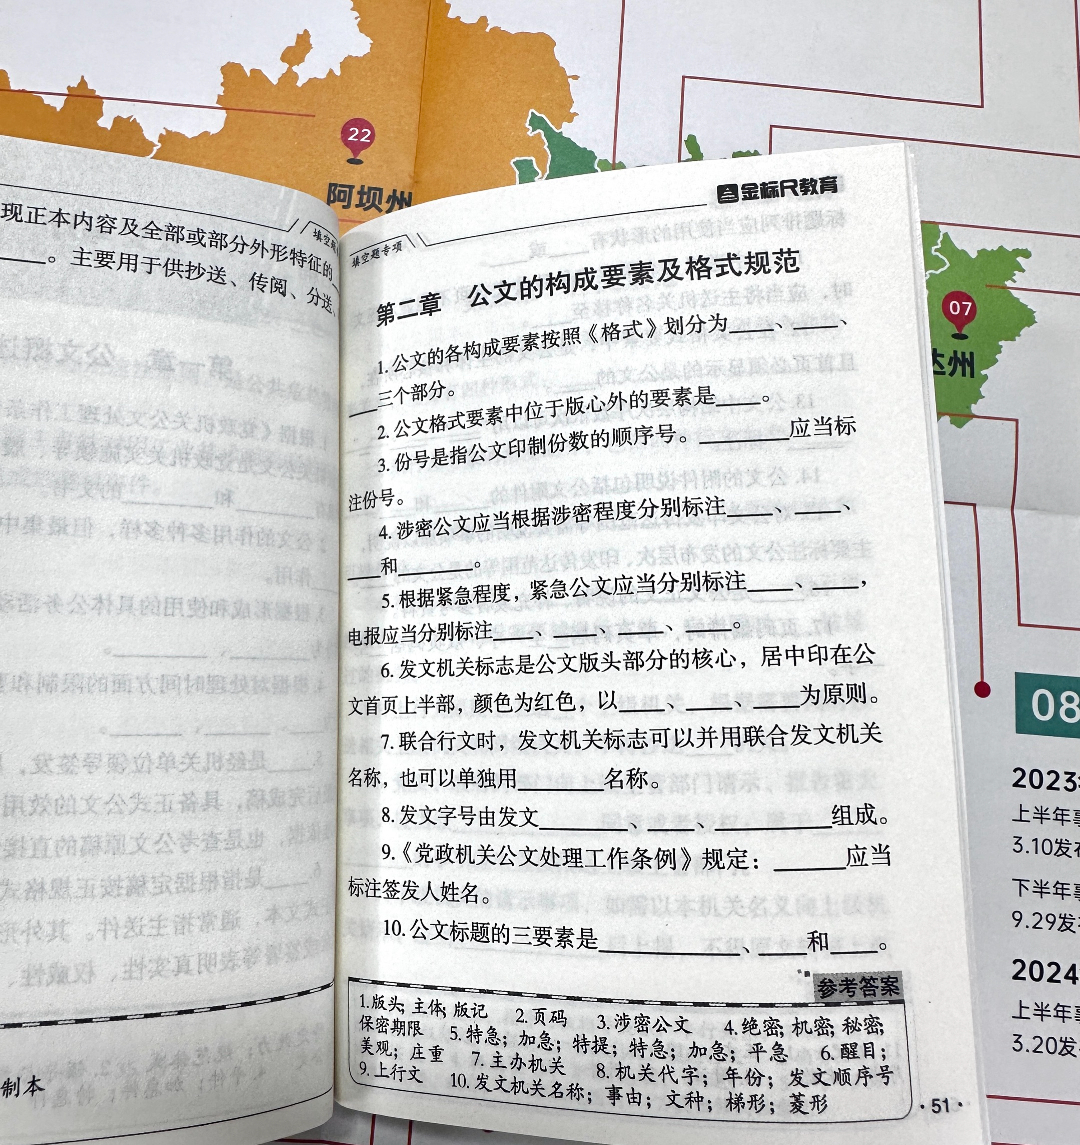 22
阿坝州
07
达州
08
2023
上半年
3.10发布
下半年
9.29发
2024
上半年
3.20发
现正本内容及全部或部分外形特征的
____。主要用于供抄送、传阅、分送、
制本
金标尺教育
填空题专项
第二章 公文的构成要素及格式规范
1.公文的各构成要素按照《格式》划分为____、____、
___三个部分。
2.公文格式要素中位于版心外的要素是____。
3.份号是指公文印制份数的顺序号。________应当标
注份号。
4.涉密公文应当根据涉密程度分别标注____、____、
___和_______。
5.根据紧急程度，紧急公文应当分别标注____、____，
电报应当分别标注____、____、____、____。
6.发文机关标志是公文版头部分的核心，居中印在公
文首页上半部，颜色为红色，以____、____、____为原则。
7.联合行文时，发文机关标志可以并用联合发文机关
名称，也可以单独用________名称。
8.发文字号由发文________、____、__________组成。
9.《党政机关公文处理工作条例》规定：______应当
标注签发人姓名。
10.公文标题的三要素是____________、____和____。
参考答案
1.版头；主体；版记 2.页码 3.涉密公文 4.绝密；机密；秘密；
保密期限 5.特急；加急；特提；特急；加急；平急 6.醒目；
美观；庄重 7.主办机关 8.机关代字；年份；发文顺序号
9.上行文 10.发文机关名称；事由；文种；梯形；菱形
·51·